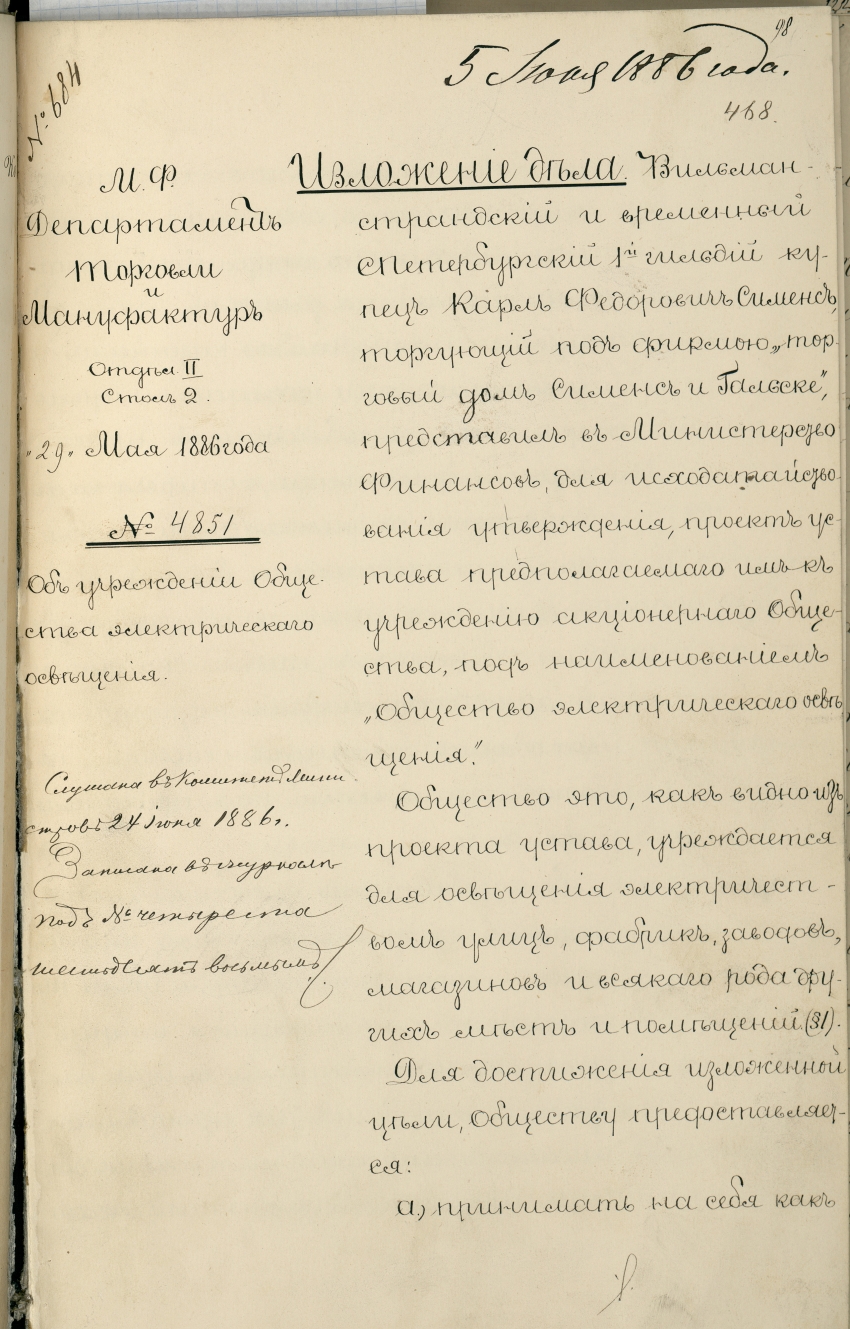 98
5 Июня 1886 года.
468.
№ 684
М. Ф.
Департаментъ
Торговли
и
Мануфактуръ
Отдѣл. II
Столъ 2.
"29" Мая 1886 года
№ 4851
Объ учрежденіи Обще-
ства электрическаго
освѣщенія.
Слушана въ Комитетѣ Мини-
стровъ 24 іюня 1886 г.
Записана въ журналѣ
подъ № четыреста
шестьдесятъ восьмымъ.
Изложеніе дѣла. Вильман-
страндскій и временный
СПетербургскій 1й гильдіи ку-
пецъ Карлъ Федоровичъ Сименсъ,
торгующій подъ фирмою „тор-
говый домъ Сименсъ и Гальске",
представилъ въ Министерство
Финансовъ, для исходатайство-
ванія утвержденія, проектъ ус-
тава предполагаемаго имъ къ
учрежденію акціонернаго Обще-
ства, подъ наименованіемъ
„Общество электрическаго освѣ-
щенія."
Общество это, какъ видно изъ
проекта устава, учреждается
для освѣщенія электричест-
вомъ улицъ, фабрикъ, заводовъ,
магазиновъ и всякаго рода дру-
гихъ мѣстъ и помѣщеній (§1).
Для достиженія изложенной
цѣли, Обществу предоставляет-
ся:
а.) принимать на себя какъ